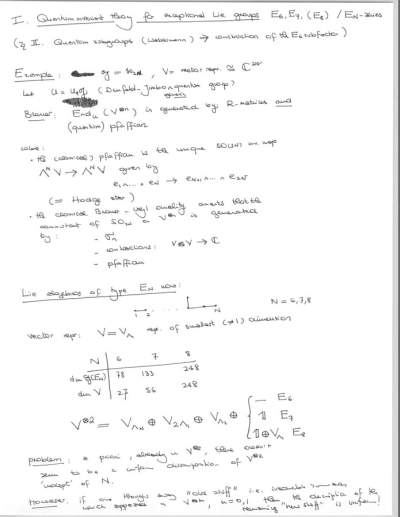 I. Quantum invariant theory for exceptional Lie groups E6, E7, (E8) / EN-series
(& II. Quantum subgroups (            ) → construction of the E8 subfactor)
Example: g = so2N, V = vector repr. ≅ C^2N
Let U = Uq g (Drinfeld-Jimbo quantum group)
Brauer: EndU (V⊗n) is generated by R-matrices and
(quantum) pfaffian
where:
- the (classical) pfaffian is the unique SO(2N) map
ΛN V → ΛN V given by
e1 ∧ ... ∧ eN → eN+1 ∧ ... e2N
(= Hodge star)
- the classical Brauer-Weyl duality asserts that the
commutant of SON on V⊗n is generated
by: - Sn
- contractions: V⊗V → C
- pfaffian
Lie algebras of type EN now:
1 2 ... N
N = 6,7,8
vector repr: V = VΛ repr. of smallest (≠1) dimension
N 6 7 8
dim g(EN) 78 133 248
dim V 27 56 248
V⊗2 = VΛN ⊕ V2Λ1 ⊕ VΛ2 ⊕ { — E6
𝟙 E7
𝟙⊕VΛ E8
problem: a priori, already in V⊗2, there doesn't
seem to be a uniform decomposition of V⊗2
"indept" of N.
However, if one throws away "old stuff" i.e.
which appeared in V⊗n, n=0,1 then the description of the
remaining "new stuff" is uniform!